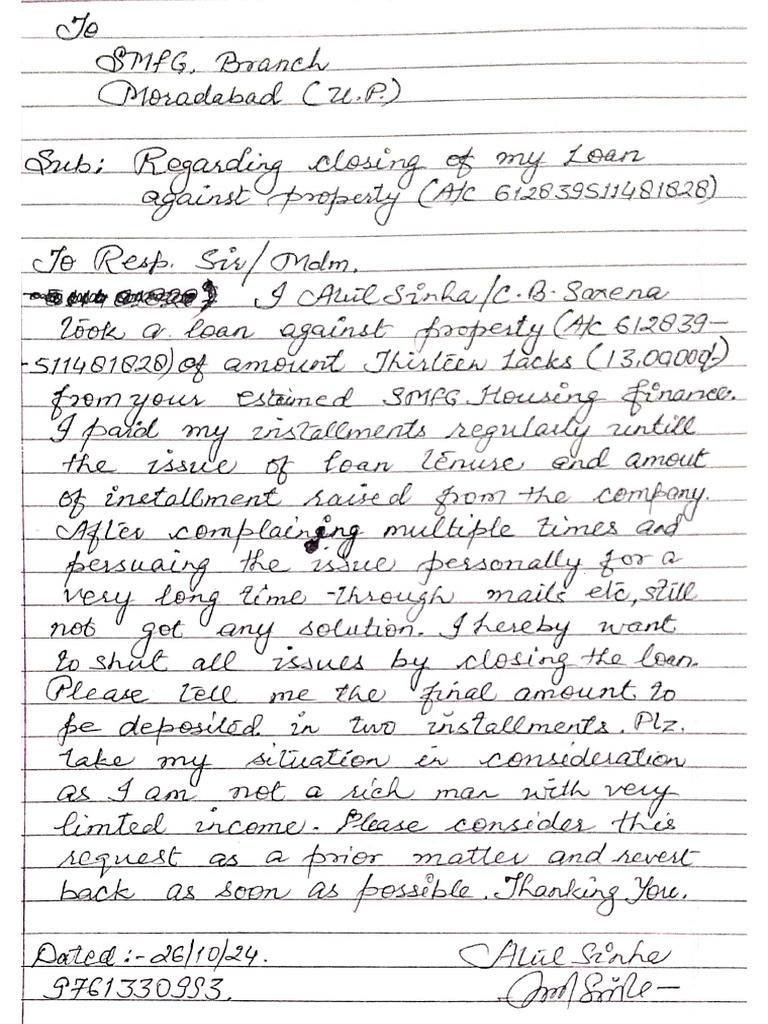 To
SMFG. Branch
Moradabad (U.P.)
Sub: Regarding closing of my Loan
against property (A/c 612839511481828)
To Resp. Sir/Mdm.
I Atul Sinha/C.B. Saxena
took a loan against property (A/c 612839-
-511481828) of amount Thirteen Lacks (13,00000/)
from your estaimed SMFG Housing finance.
I paid my installments regularly untill
the issue of loan tenure and amout
of installment raised from the company.
After complaining multiple times and
persuaing the issue personally for a
very long time through mails etc, still
not got any solution. I hereby want
to shut all issues by closing the loan.
Please tell me the final amount to
be deposited in two installments. Plz.
take my situation in consideration
as I am not a rich man with very
limted income. Please consider this
request as a prior matter and revert
back as soon as possible. Thanking You.
Dated :- 26/10/24.
Atul Sinha
9761330993.